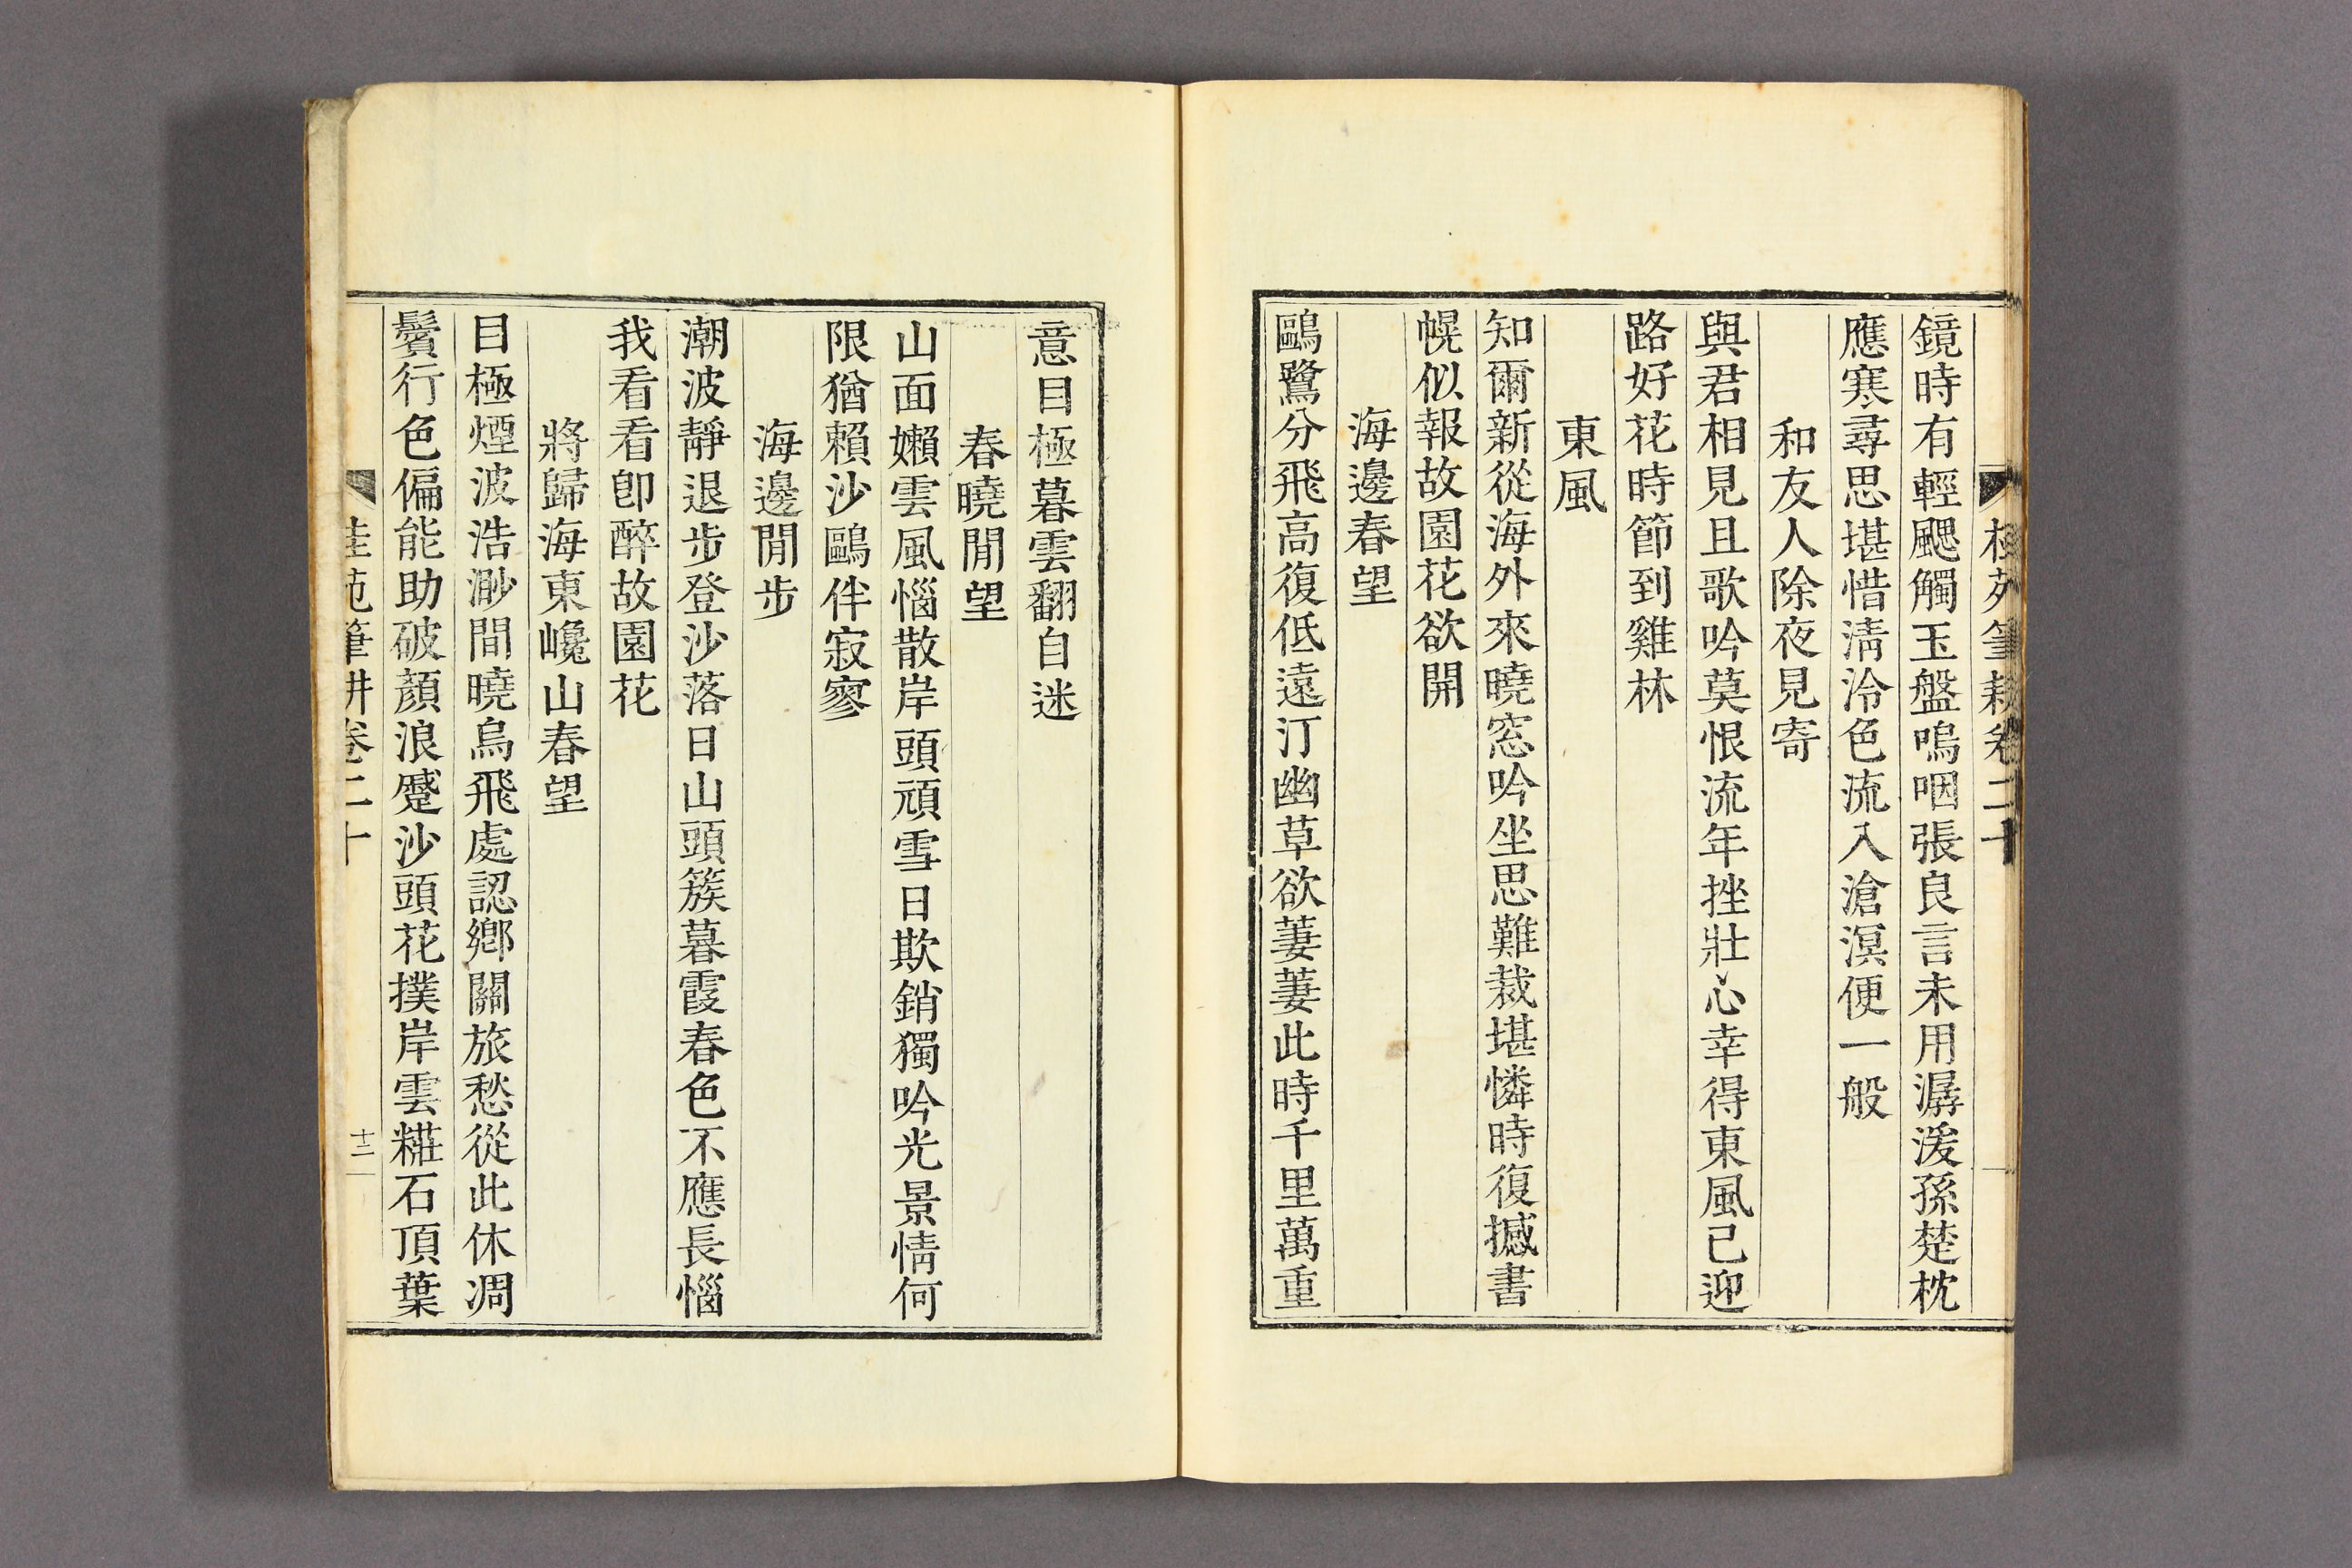 桂苑筆耕卷二十
鏡時有輕颸觸玉盤嗚咽張良言未用潺湲孫楚枕
應寒尋思堪惜淸泠色流入滄溟便一般
和友人除夜見寄
與君相見且歌吟莫恨流年挫壯心幸得東風已迎
路好花時節到雞林
東風
知爾新從海外來曉窓吟坐思難裁堪憐時復撼書
幌似報故園花欲開
海邊春望
鷗鷺分飛高復低遠汀幽草欲萋萋此時千里萬重
意目極暮雲翻自迷
春曉閒望
山面嬾雲風惱散岸頭頑雪日欺銷獨吟光景情何
限猶賴沙鷗伴寂寥
海邊閒步
潮波靜退步登沙落日山頭簇暮霞春色不應長惱
我看看卽醉故園花
將歸海東巉山春望
目極煙波浩渺間曉烏飛處認鄕關旅愁從此休凋
鬢行色偏能助破顏浪蹙沙頭花撲岸雲糚石頂葉
桂苑筆耕卷二十
十二